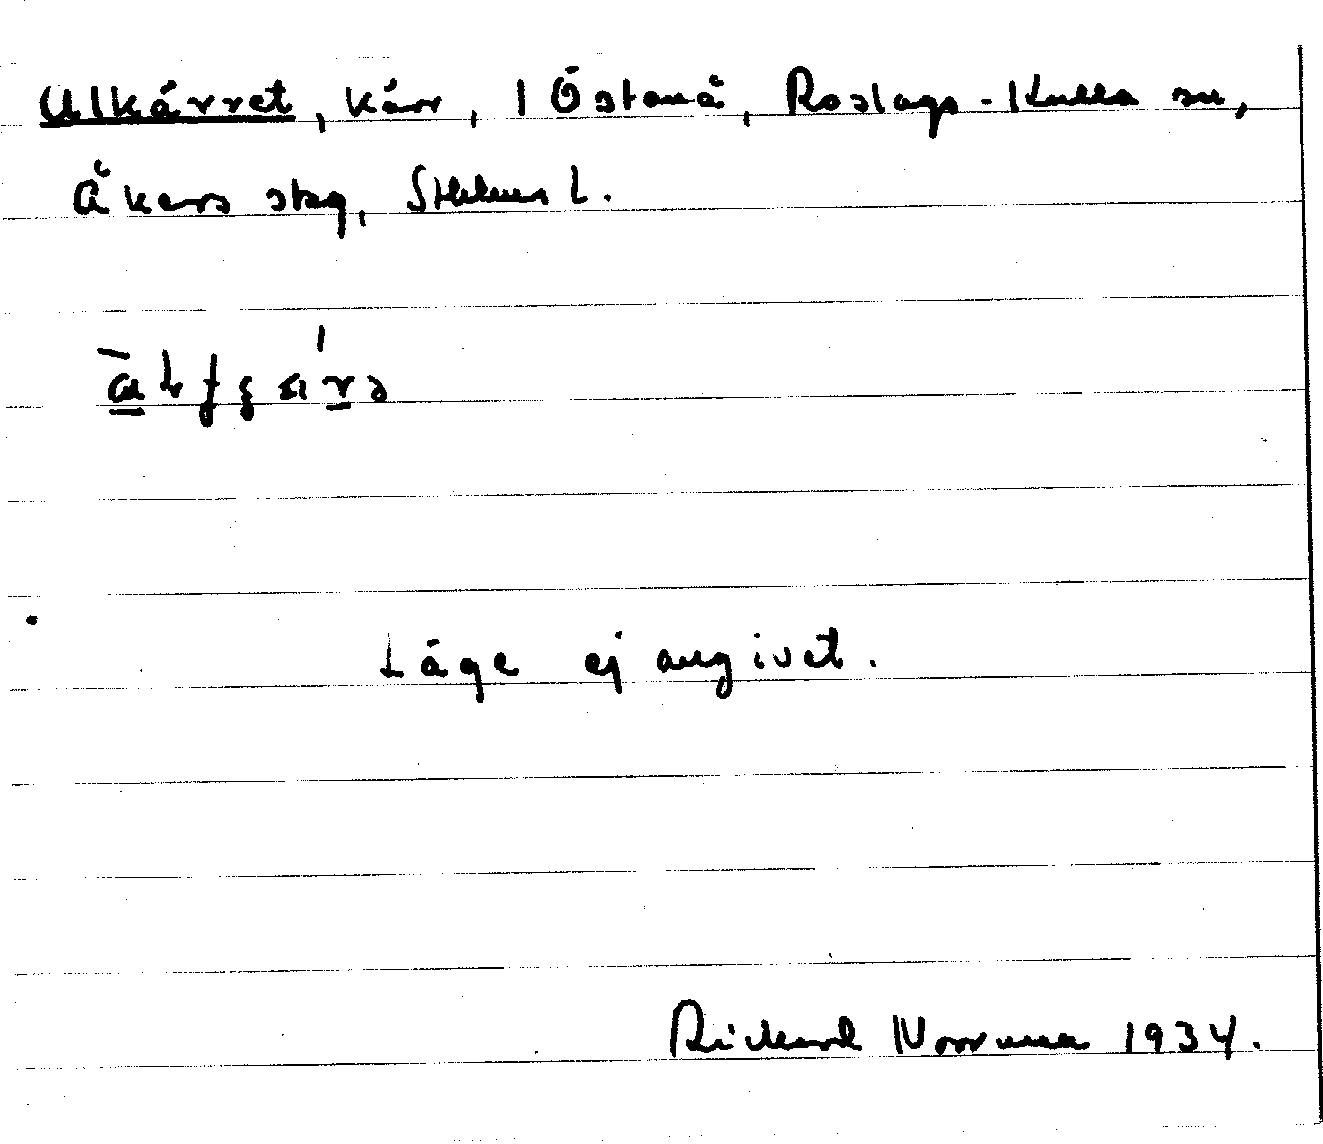 Ulkärret, kärr, 1 Östanå, Roslags-Kulla sn,
Åkers skg, Sthlms l.
Läge ej angivet.
Rickard Norrman 1934.